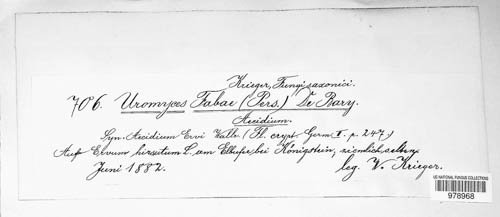 Krieger, Fungi saxonici.
706. Uromyces Fabae (Pers.) De Bary.
Aecidium.
Syn. Aecidium Ervi Wallr. (Fl. crypt. Germ. II. p. 247.)
Auf Ervum hirsutum L. am Elbufer bei Königstein, ziemlich selten.
Juni 1882. leg. W. Krieger.
US NATIONAL FUNGUS COLLECTIONS
978968